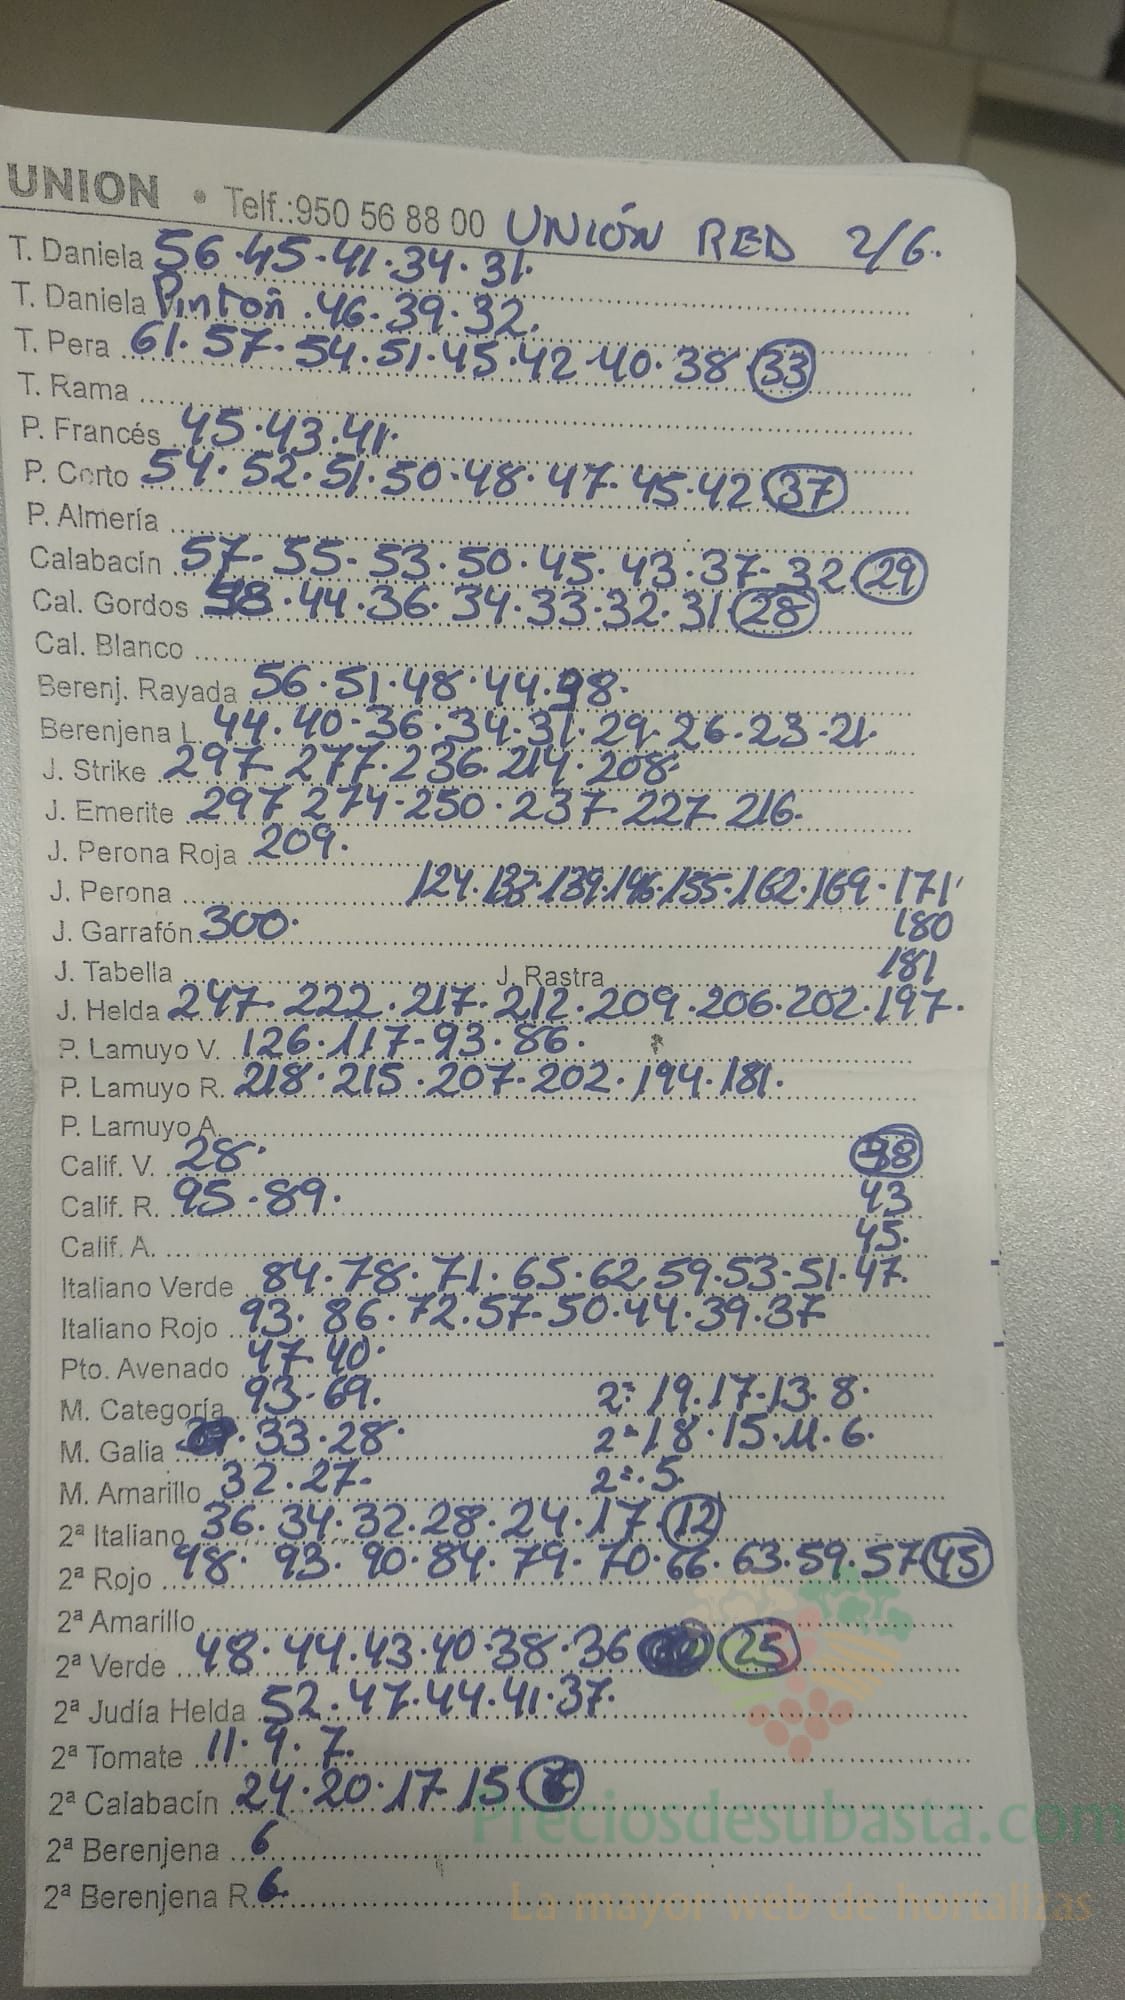 UNION • Telf.:950 56 88 00 UNIÓN RED 2/6.
T. Daniela 56.45-41.34.31.
T. Daniela Pintoñ .46.39.32.
T. Pera 61.57.54.51.45.42.40.38 33
T. Rama
P. Francés 45.43.41.
P. Corto 54.52.51.50.48.47.45.42 37
P. Almería
Calabacín 57-55-53.50.45.43.37.32 29
Cal. Gordos .44.36.34.33.32.31 28
Cal. Blanco
Berenj. Rayada 56.51.48.44.38.
Berenjena L. 44.40-36.34.31.29.26.23.21.
J. Strike 297 277.236.214.208.
J. Emerite 297 274-250.237.227.216.
J. Perona Roja 209.
J. Perona 124.133.139.146.155.162.169.171
J. Garrafón 300. 180
J. Tabella J. Rastra 181
J. Helda 247.222.217.212.209.206.202.197.
P. Lamuyo V. 126.117-93.86.
P. Lamuyo R. 218.215.207.202.194.181.
P. Lamuyo A.
Calif. V. 28. 38
Calif. R. 95.89. 43
Calif. A. 45.
Italiano Verde 84.78.71.65.62.59.53.51.47.
Italiano Rojo 93.86.72.57.50.44.39.37
Pto. Avenado 47.40.
M. Categoría 93.69. 2ª 19.17.13.8.
M. Galia .33.28. 2ª 18.15.11.6.
M. Amarillo 32.27. 2ª.5.
2ª Italiano 36.34.32.28.24.17.12
2ª Rojo 98.93.90.84.79.70.66.63.59.57 45
2ª Amarillo
2ª Verde 48.44.43.40.38.36 25
2ª Judía Helda 52.47.44.41.37.
2ª Tomate 11.9.7.
2ª Calabacín 24.20.17 15
2ª Berenjena 6
2ª Berenjena R. 6.
Preciosdesubasta.com
La mayor web de hortalizas